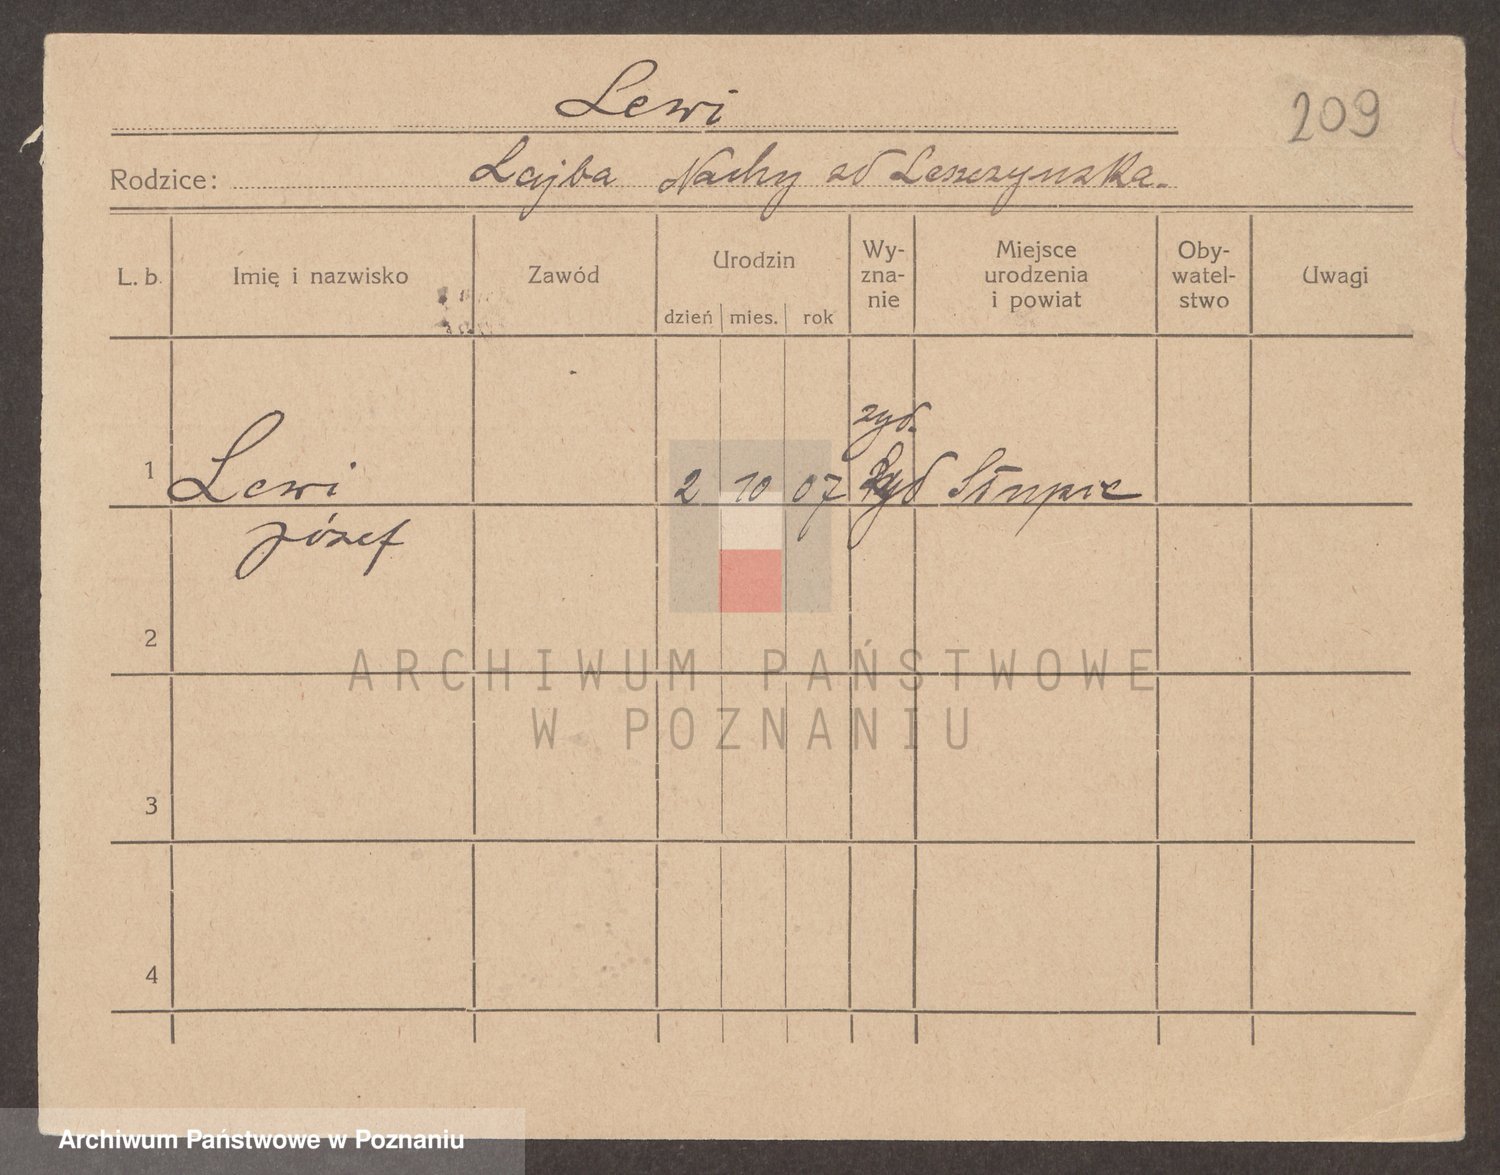 Lewi
209
Rodzice: Lajba Nachy od Leszczynska.
L. b. Imię i nazwisko Zawód Urodzin dzień mies. rok Wy-zna-nie Miejsce urodzenia i powiat Oby-watel-stwo Uwagi
żyd.
1 Lewi 2 10 07 Słupie
Józef
2
ARCHIWUM PAŃSTWOWE
W POZNANIU
3
4
Archiwum Państwowe w Poznaniu